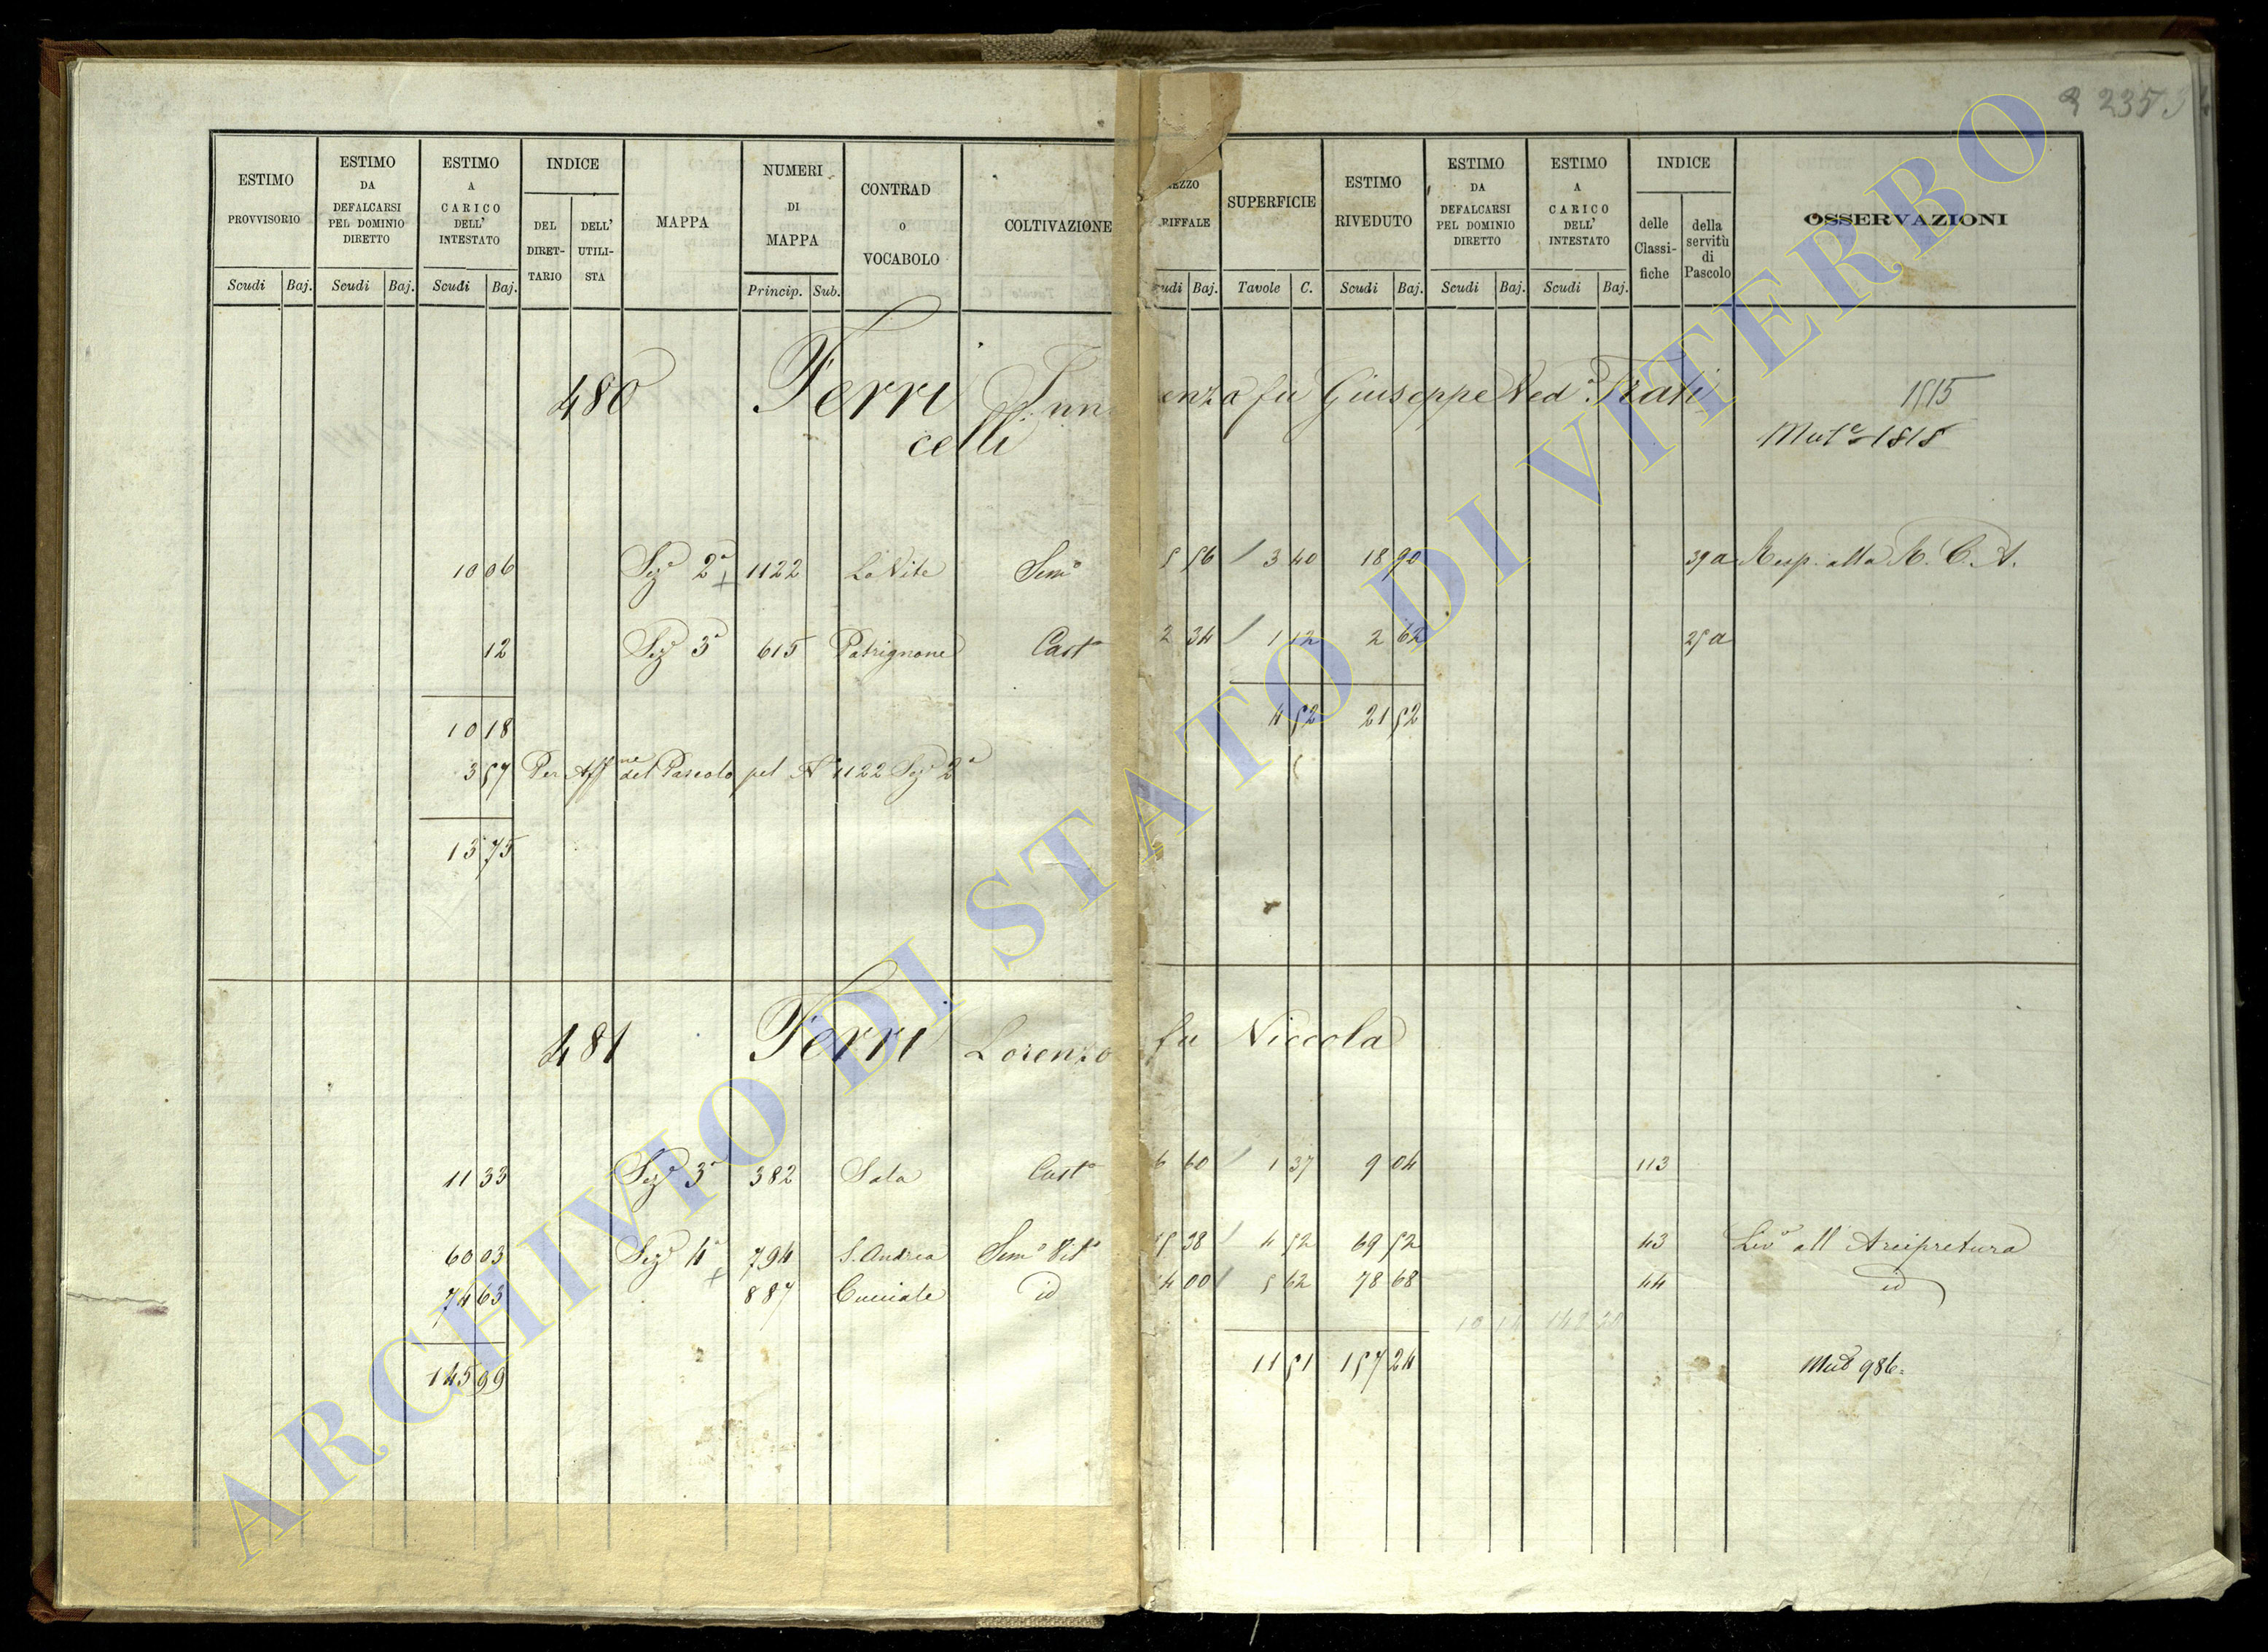 235
ESTIMO PROVVISORIO Scudi Baj.
ESTIMO DA DEFALCARSI PEL DOMINIO DIRETTO Scudi Baj.
ESTIMO A CARICO DELL' INTESTATO Scudi Baj.
INDICE DEL DIRETTARIO DELL' UTILISTA
MAPPA
NUMERI DI MAPPA Princip. Sub.
CONTRAD o VOCABOLO
COLTIVAZIONE
EZZO RIFFALE udi Baj.
SUPERFICIE Tavole C.
ESTIMO RIVEDUTO Scudi Baj.
ESTIMO DA DEFALCARSI PEL DOMINIO DIRETTO Scudi Baj.
ESTIMO A CARICO DELL' INTESTATO Scudi Baj.
INDICE delle Classifiche della servitù di Pascolo
OSSERVAZIONI
480 Ferri enza fu Giuseppe Ved.a
celli
1515
Mut.e 1818
10 06 Sez.e 2a 1122 Le Vite Sem.o 5 56 3 40 18 90 39a Resp. alla R. C. A.
12 Sez.e 3a 615 Patrignone Cast.o 2 34 1 12 2 62 25a
10 18 4 52 21 52
3 57 Per Aff.ne del Pascolo pel N 1122 Sez.e 2a
13 75
481 Ferri Lorenzo fu Niccola
11 33 Sez.e 3a 382 Sala Cast.o 6 60 1 37 9 04 113
60 03 Sez.e 4a 794 S. Andrea Sem.o Vit.o 38 4 52 69 52 43 Liv.o all' Arcipretura
74 63 887 Cucciale id 00 5 62 78 68 44 id
145 99 11 51 157 24 Mut 986
ARCHIVIO DI STATO DI VITERBO